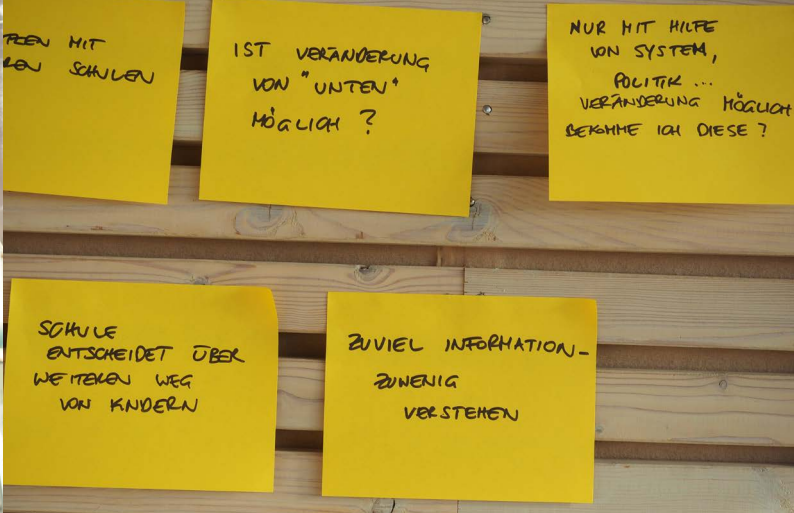 MIT
SCHULEN
IST VERÄNDERUNG
VON "UNTEN"
MÖGLICH ?
NUR MIT HILFE
VON SYSTEM,
POLITIK ...
VERÄNDERUNG MÖGLICH
BEKOMME ICH DIESE ?
SCHULE
ENTSCHEIDET ÜBER
WEITEREN WEG
VON KNDERN
ZUVIEL INFORMATION–
ZUWENIG
VERSTEHEN